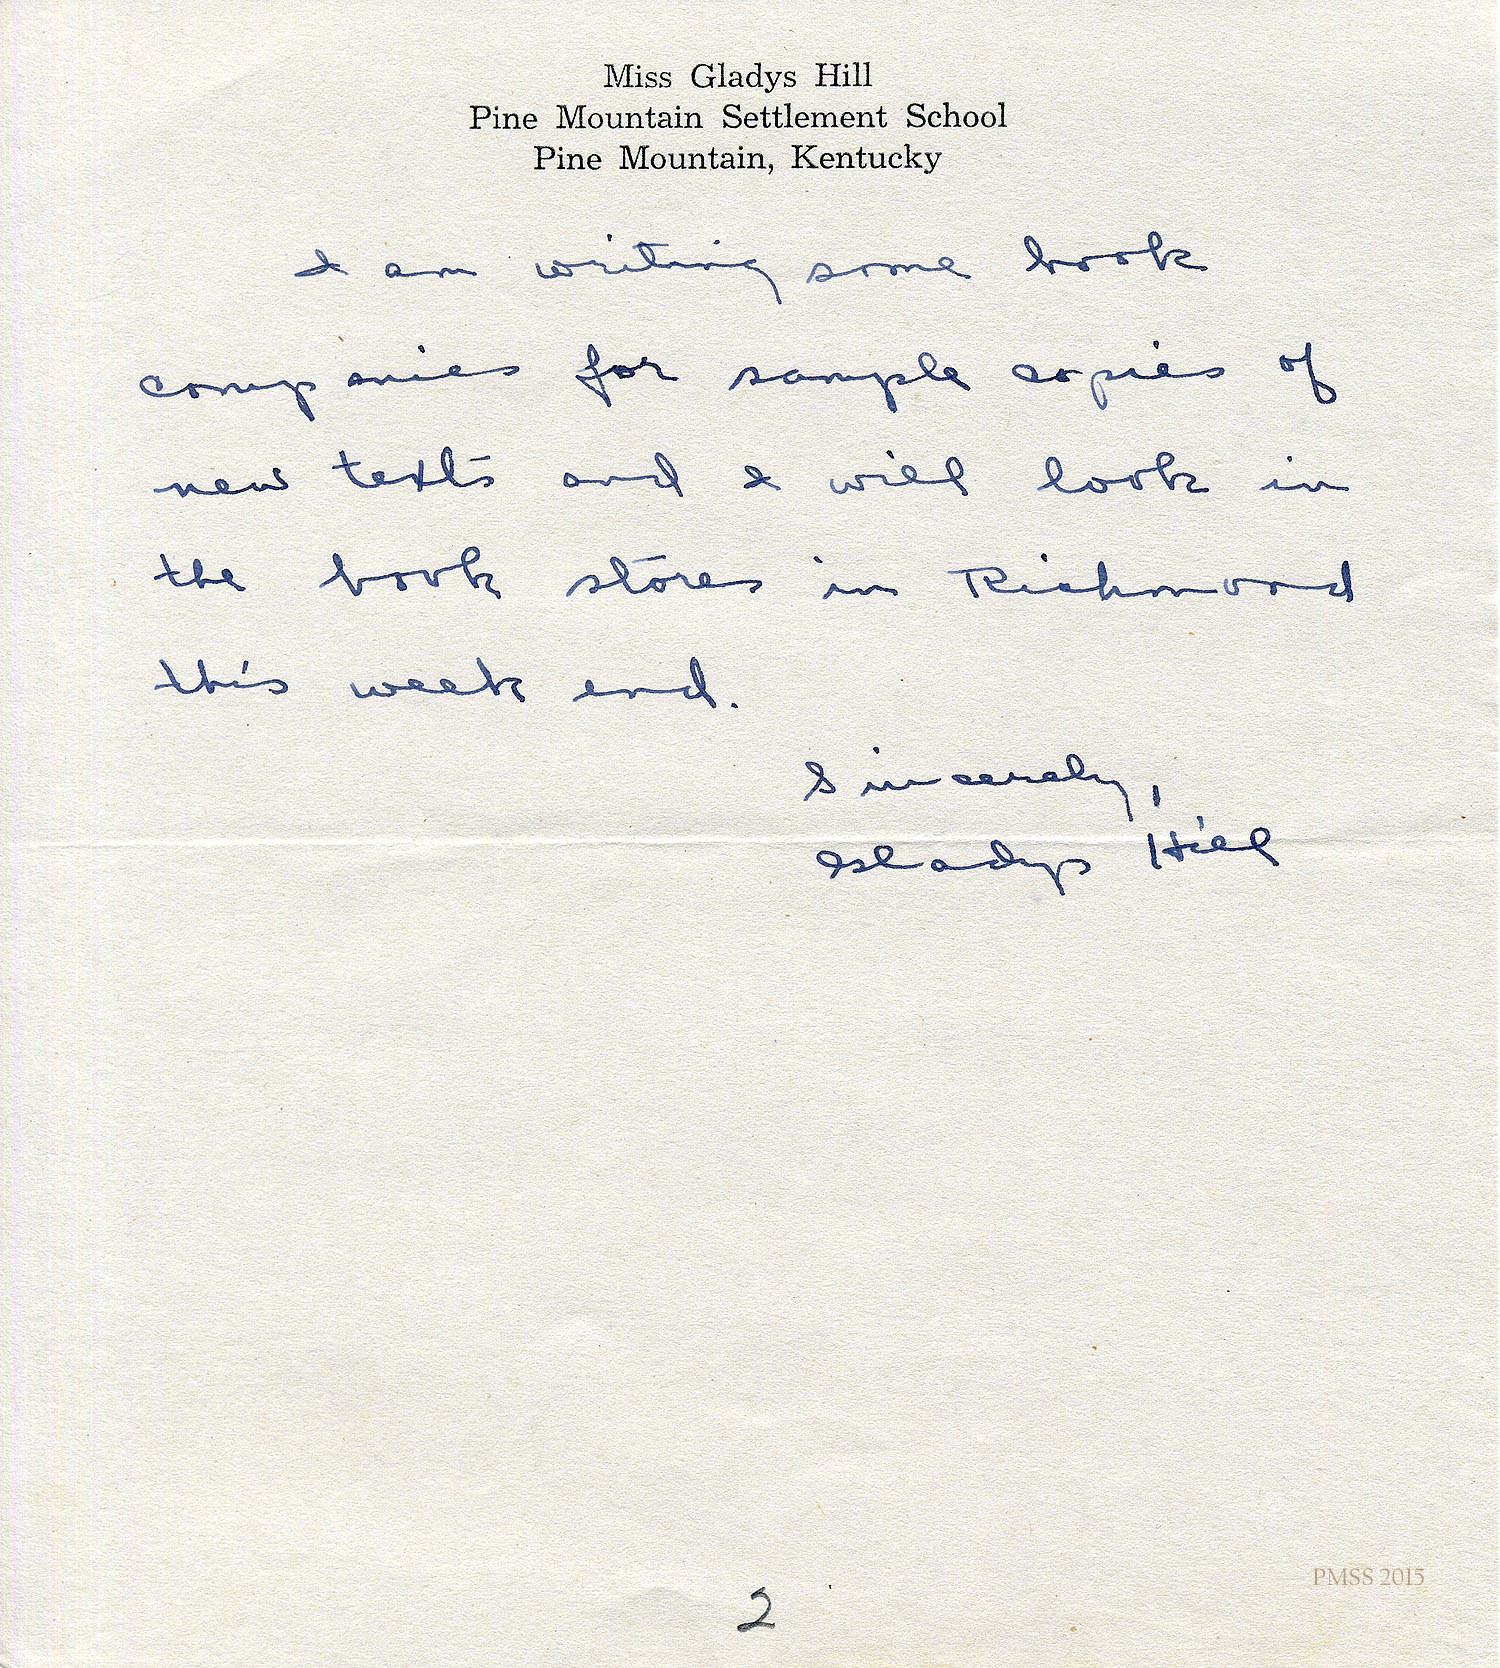 Miss Gladys Hill
Pine Mountain Settlement School
Pine Mountain, Kentucky
I am writing some book
companies for sample copies of
new texts and I will look in
the book stores in Richmond
this week end.
Sincerely,
Gladys Hill
2
PMSS 2015